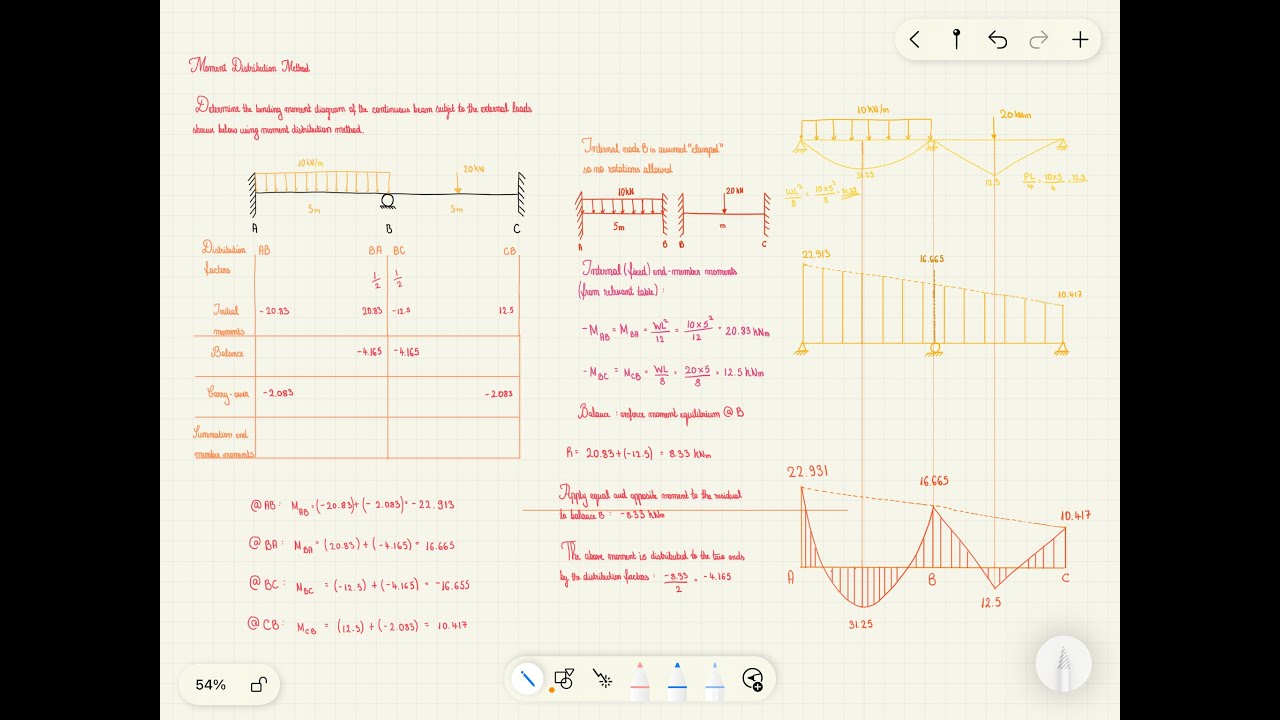 Moment Distribution Method
Determine the bending moment diagram of the continuous beam subjct to the external loads
shown below using moment distribution method.
10 kN/m
20 kN
5m
5m
A
B
C
Distribution
factors
AB
BA
BC
CB
1/2
1/2
Initial
moments
-20.83
20.83
-12.5
12.5
Balance
-4.165
-4.165
Carry-over
-2.083
-2.083
Summation end
member moments
@ AB: M_AB = (-20.83)+(-2.083)= -22.913
@ BA: M_BA = (20.83) + (-4.165) = 16.665
@ BC: M_BC = (-12.5) + (-4.165) = -16.655
@ CB: M_CB = (12.5) + (-2.083) = 10.417
Internal node B is assumed "clamped"
so no rotations allowed
10kN
20 kN
5m
m
A
B
B
C
Internal (fixed) end-member moments
(from relevant table) :
-M_AB = M_BA = WL²/12 = 10×5²/12 = 20.83 kNm
-M_BC = M_CB = WL/8 = 20×5/8 = 12.5 kNm
Balance : enforce moment equilibrium @ B
R = 20.83 + (-12.5) = 8.33 kNm
Apply equal and opposite moment to the residual
to balance B : -8.33 kNm
The above moment is distributed to the two ends
by the distribution factors : -8.33/2 = -4.165
10 kN/m
20 kNm
31.25
12.5
WL²/8 = 10×5²/8 = 31.25
PL/4 = 10×5/4 = 12.5
22.913
16.665
10.417
22.931
16.665
10.417
A
B
C
12.5
31.25
54%